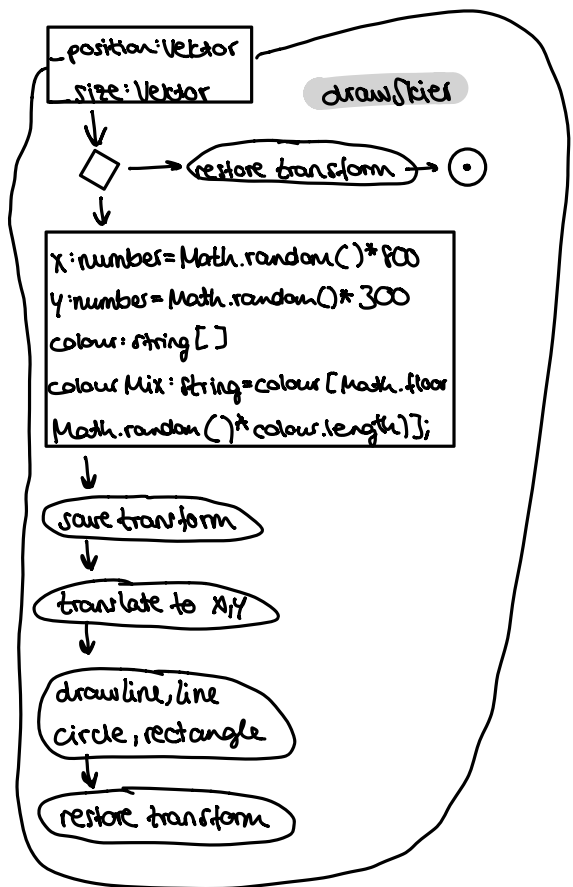 _position:Vektor
_size:Vektor
drawSkier
restore transform
x:number=Math.random()*800
y:number=Math.random()*300
colour:string[]
colour Mix:string=colour[Math.floor
Math.random()*colour.length)];
save transform
translate to x,y
drawline, line
circle, rectangle
restore transform